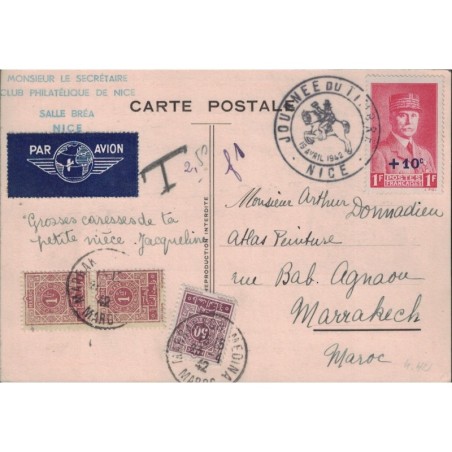 MONSIEUR LE SECRÉTAIRE
CLUB PHILATÉLIQUE DE NICE
SALLE BRÉA
NICE
CARTE POSTALE
JOURNÉE DU TIMBRE
NICE
+10c
1F POSTES FRANÇAISES 1F
PAR AVION
T
Grosses caresses de ta
petite nièce. Jacqueline
REPRODUCTION INTERDITE
Monsieur Arthur Donnadieu
Atlas Peinture
rue Bab. Agnaou
Marrakech
Maroc
1
1
50
42
MAROC
MEDINA
42
MAROC